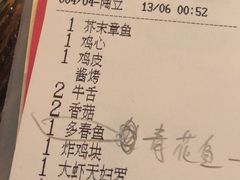 004/04-陶立 13/06 00:52
1 芥末章鱼
1 鸡心
1 鸡皮
酱烤
2 牛舌
2 香菇
1 多春鱼 青花鱼
1 炸鸡块
大虾天妇罗